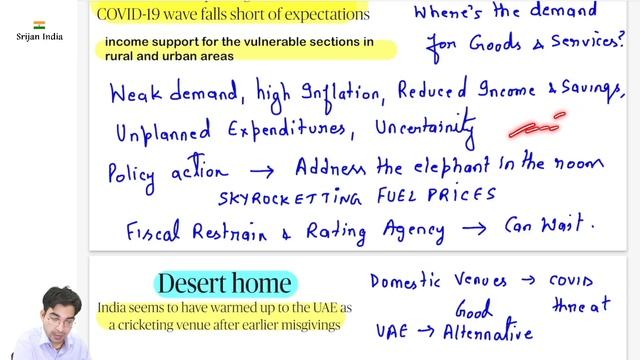 Srijan India
COVID-19 wave falls short of expectations
income support for the vulnerable sections in
rural and urban areas
Where's the demand
for Goods & Services?
Weak demand, high Inflation, Reduced Income & Savings,
Unplanned Expenditures, Uncertainity
Policy action → Address the elephant in the room
SKYROCKETTING FUEL PRICES
Fiscal Restrain & Rating Agency → Can Wait.
Desert home
India seems to have warmed up to the UAE as
a cricketing venue after earlier misgivings
Domestic Venues → COVID
threat
UAE → Good
Alternative